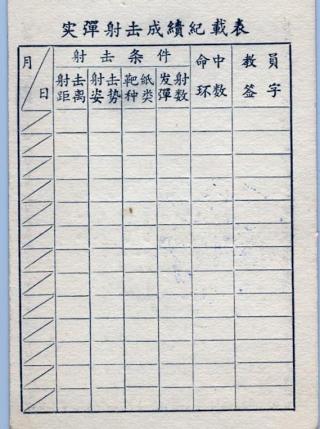 实彈射击成績紀載表
月 日 射击条件 命中 教員
射击 射击 靶紙 发射 环数 签字
距离 姿势 种类 彈数